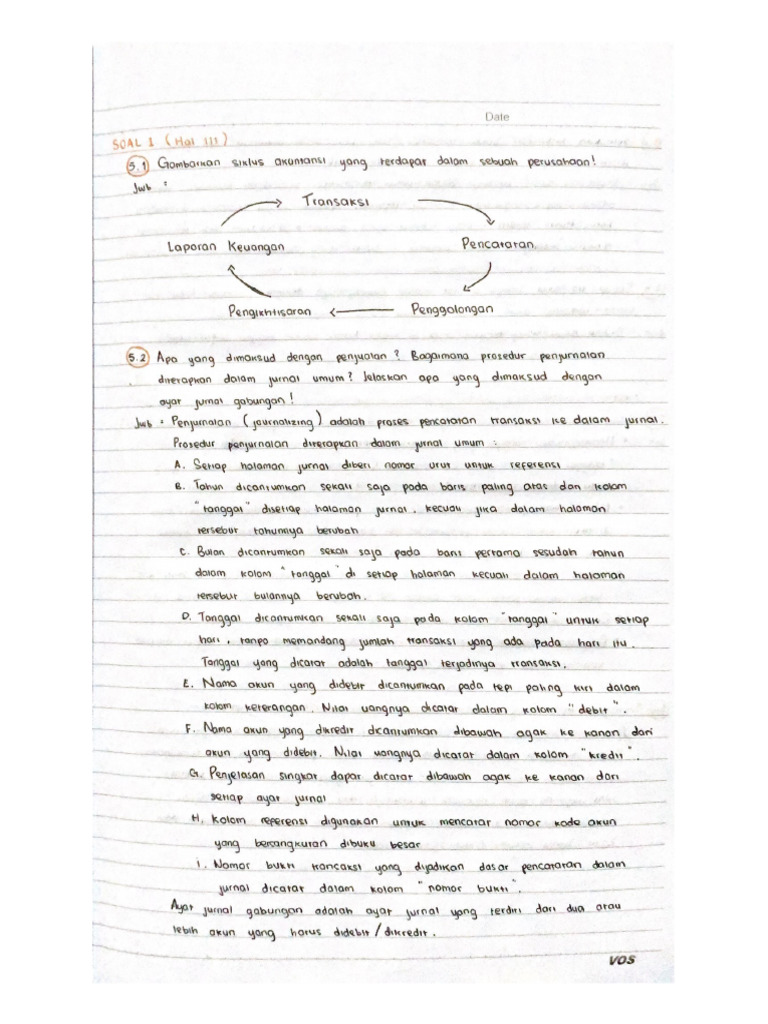 Date
SOAL 1 (Hal 111)
5.1 Gambarkan siklus akuntansi yang terdapat dalam sebuah perusahaan!
Jwb :
Transaksi
Laporan Keuangan
Pencatatan
Pengikhtisaran
Penggolongan
5.2 Apa yang dimaksud dengan penjualan? Bagaimana prosedur penjurnalan
diterapkan dalam jurnal umum? Jelaskan apa yang dimaksud dengan
ayat jurnal gabungan!
Jwb : Penjurnalan (journalizing) adalah proses pencatatan transaksi ke dalam jurnal.
Prosedur penjurnalan diterapkan dalam jurnal umum :
A. Setiap halaman jurnal diberi nomor urut untuk referensi
B. Tahun dicantumkan sekali saja pada baris paling atas dan kolom
"tanggal" disetiap halaman jurnal, kecuali jika dalam halaman
tersebut tahunnya berubah
C. Bulan dicantumkan sekali saja pada baris pertama sesudah tahun
dalam kolom "tanggal" di setiap halaman kecuali dalam halaman
tersebut bulannya berubah.
D. Tanggal dicantumkan sekali saja pada kolom "tanggal" untuk setiap
hari, tanpa memandang jumlah transaksi yang ada pada hari itu.
Tanggal yang dicatat adalah tanggal terjadinya transaksi.
E. Nama akun yang didebit dicantumkan pada tepi paling kiri dalam
kolom keterangan. Nilai uangnya dicatat dalam kolom "debit".
F. Nama akun yang dikredit dicantumkan dibawah agak ke kanan dari
akun yang didebit. Nilai uangnya dicatat dalam kolom "kredit".
G. Penjelasan singkat dapat dicatat dibawah agak ke kanan dari
setiap ayat jurnal
H. Kolom referensi digunakan untuk mencatat nomor kode akun
yang bersangkutan dibuku besar
i. Nomor bukti transaksi yang dijadikan dasar pencatatan dalam
jurnal dicatat dalam kolom "nomor bukti".
Ayat jurnal gabungan adalah ayat jurnal yang terdiri dari dua atau
lebih akun yang harus didebit/dikredit.
VOS